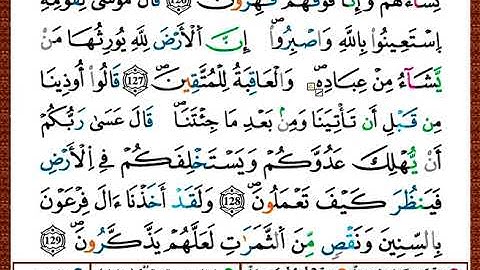 نِسَآءَهُمْ وَإِنَّا فَوْقَهُمْ قَٰهِرُونَۖ 126 قَالَ مُوسَىٰ لِقَوْمِهِ
اِ۪سْتَعِينُواْ بِاللَّهِ وَاصْبِرُوٓاْۖ إِنَّ اَ۬لْأَرْضَ لِلهِ يُورِثُهَا مَنْ
يَّشَآءُ مِنْ عِبَادِهِۦۖ وَالْعَٰقِبَةُ لِلْمُتَّقِينَۖ 127 قَالُوٓاْ أُوذِينَا
مِن قَبْلِ أَن تَأْتِيَنَا وَمِنۢ بَعْدِ مَا جِئْتَنَاۖ قَالَ عَسَىٰ رَبُّكُمْ
أَنْ يُّهْلِكَ عَدُوَّكُمْ وَيَسْتَخْلِفَكُمْ فِے اِ۬لْأَرْضِ
فَيَنظُرَ كَيْفَ تَعْمَلُونَۖ 128 وَلَقَدْ أَخَذْنَآ ءَالَ فِرْعَوْنَ
بِالسِّنِينَ وَنَقْصٍ مِّنَ اَ۬لثَّمَرَٰتِ لَعَلَّهُمْ يَذَّكَّرُونَۖ 129